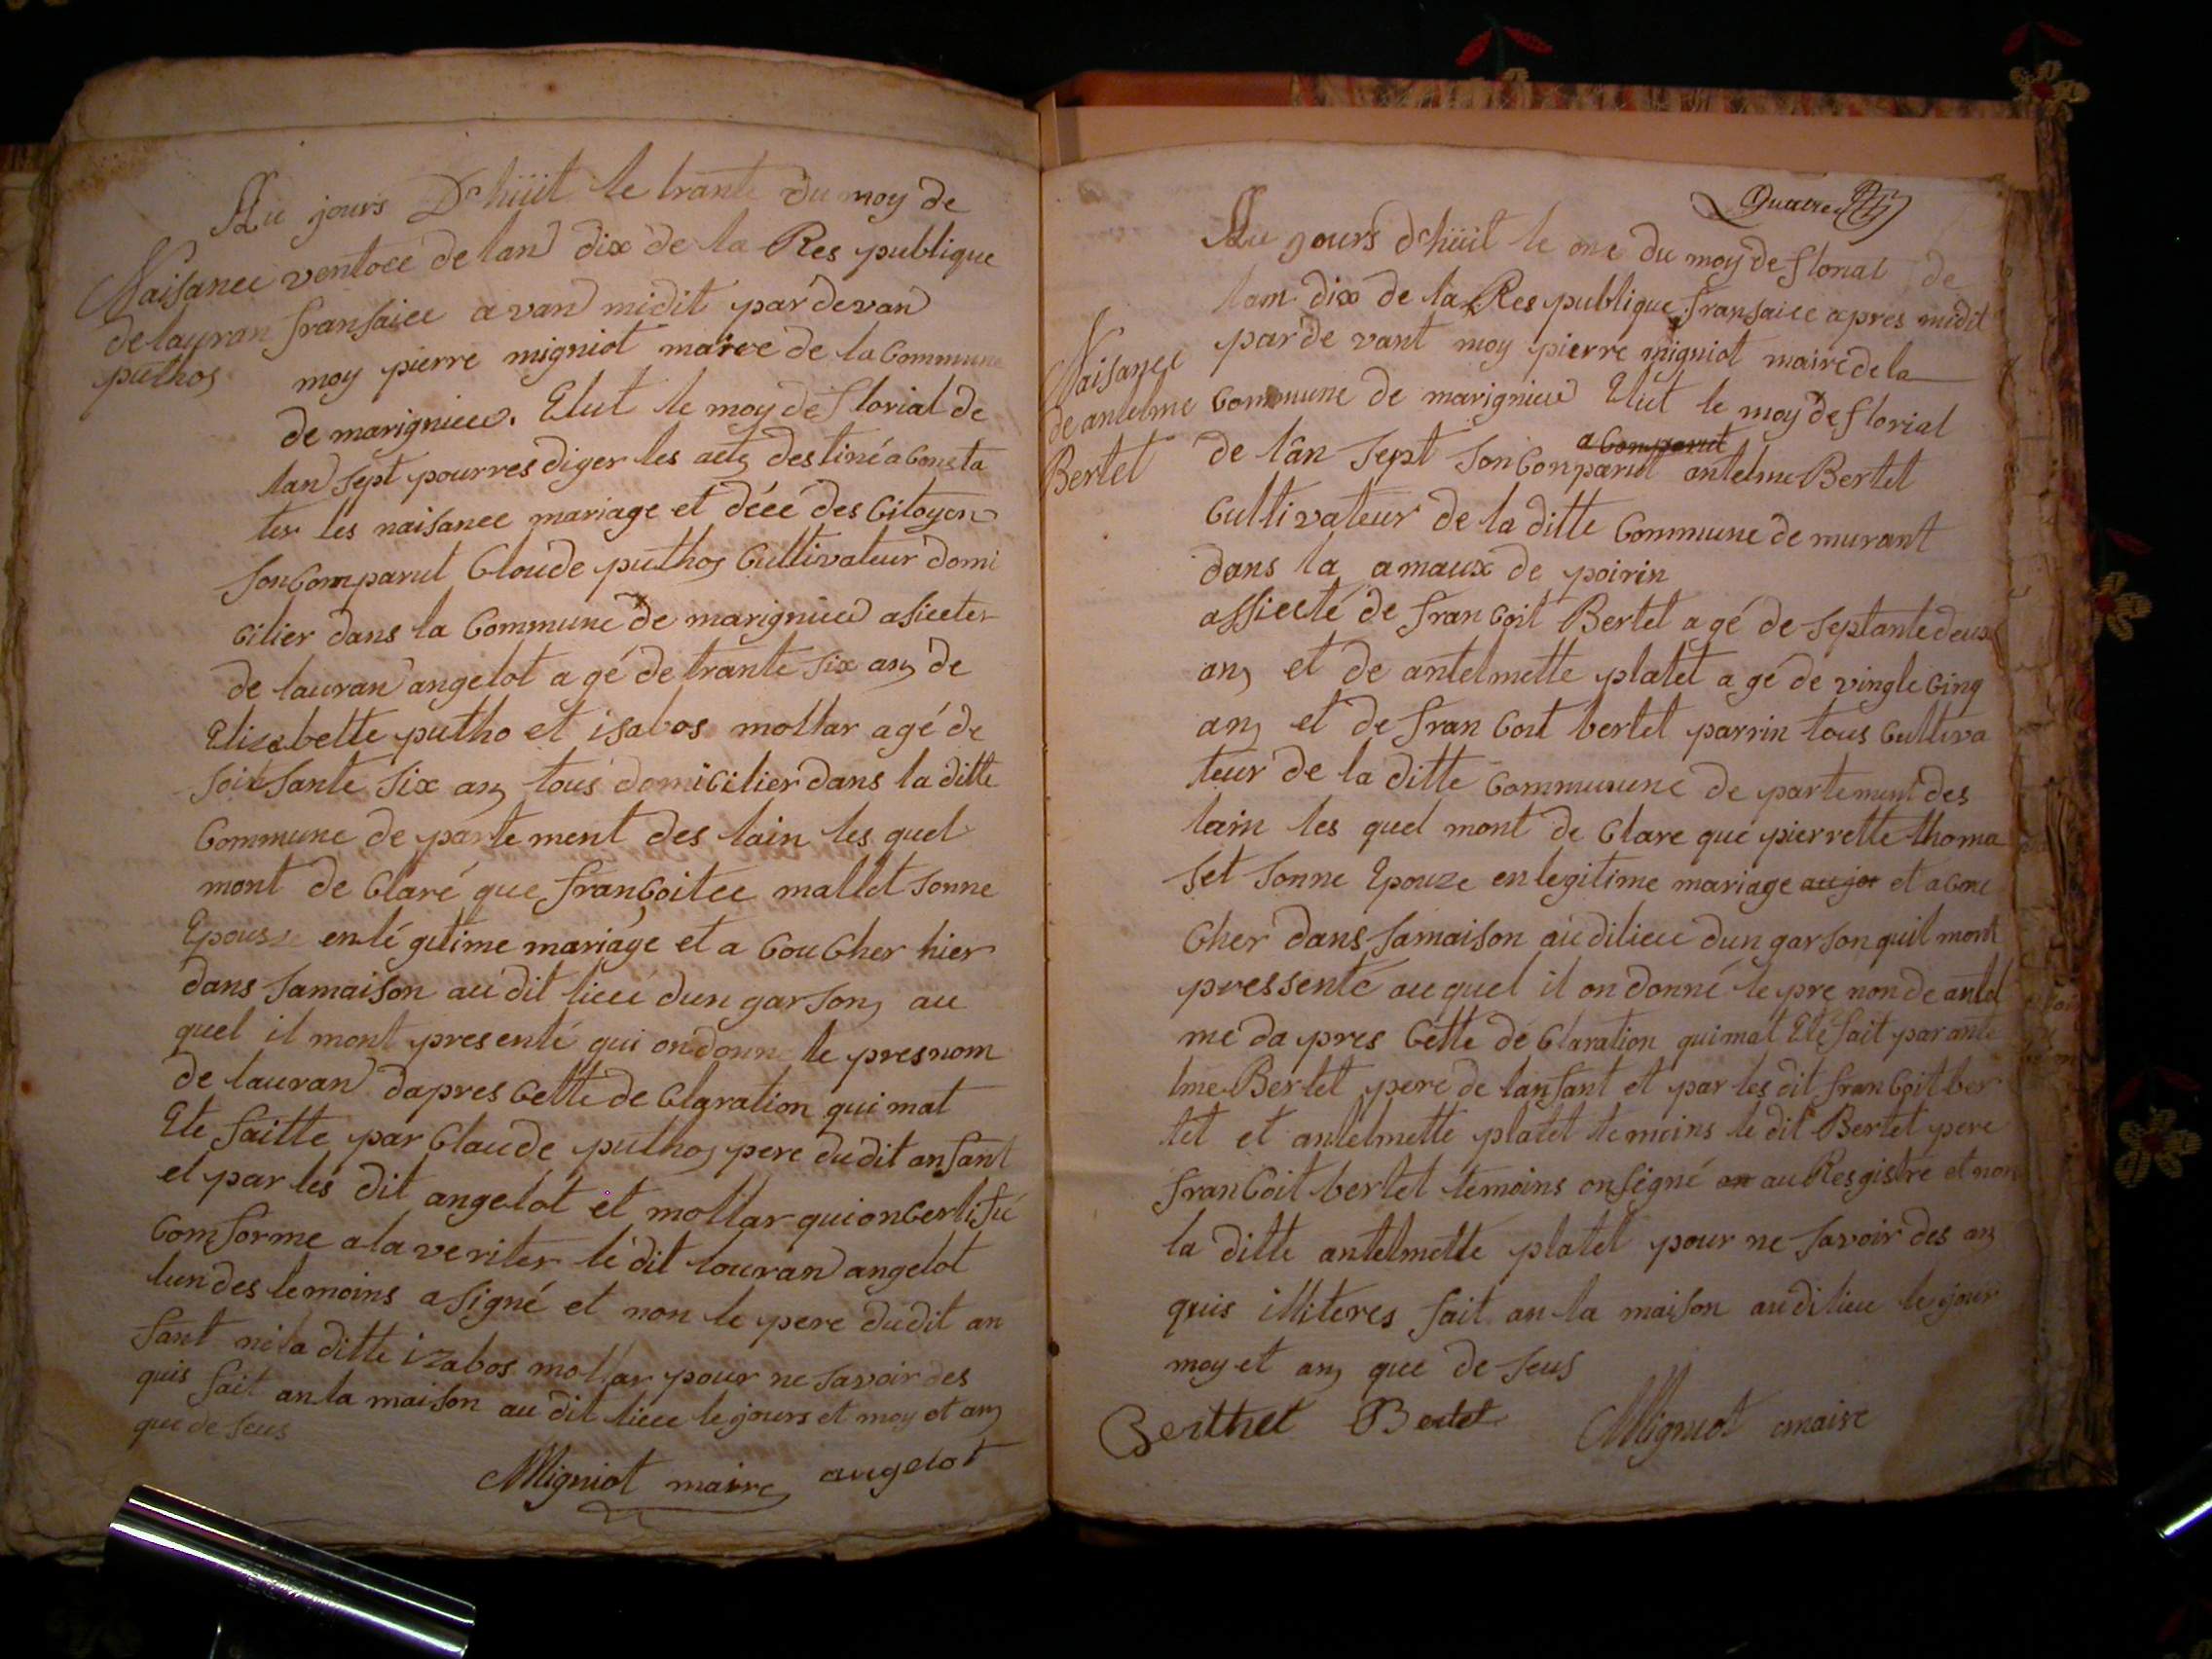 Au jours D'hüit le trante du moy de
Naisance
de lauran
puthos
ventoce de lan dix de la Res publique
fransaice avan midit par devan
moy pierre migniot maire de la Commune
de marignieu. Elut le moy de florial de
lan sept pour res diger les acts destiné a Consta
ter les naisance mariage et décé des Citoyen
son Comparut Cloude puthos Cultivateur domi
cilier dans la Commune de marignieu asicter
de lauran angelot agé de trante six ans de
Elizebette putho et isabos mollar agé de
soixsante six ans tous domicilier dans la ditte
Commune de parte ment des lain les quel
mont de Claré que franCoitee mallet sonne
Epousze en lé gitime mariage et a CouCher hier
dans samaison au dit lieu dun garsons au
quel il mont presenté qui on donne le presnom
de lauran dapres Cette de Claration qui mat
Ete faitte par Claude puthos pere du dit anfant
et par les dit angelot et mollar qui on Certifié
Comforme a la veriter le dit louran angelot
lun des temoins a signé et non le pere du dit an
fant ni la ditte izabos mollar pour ne savoir des
quis fait an la maison au dit lieu le jours et moy et ans
que de seus
Migniot maire angelot
Quatre
Au jours d'hüit le onc du moy de florial de
lam dix de la Res publique fransaice apres midit
Naisance
de antelme
Bertet
par de vant moy pierre migniot maire de la
Commune de marignieu Elut le moy de florial
a Comparut
de lân sept son Comparut antelme Bertet
Cultivateur de la ditte Commune de murant
dans la amaux de poirin
assiecté de franCoit Bertet agé de septante deux
ans et de antelmette platet agé de vingte Cinq
ans et de franCoit bertet parrin tous Cultiva
teur de la ditte Commuune de partement des
lain les quel mont de Clare que pierrette thoma
set sonne Epouze en legitime mariage aujor et a Cou
Cher dans samaison audilieu dun garson quil mont
pressenté au quel il on donné le pre non de antel
me da pres Cette de Claration qui mat Ete fait par ante
lme Bertet pere de lanfant et par les dit franCoit ber
tet et antelmette platet temoins le dit Bertet pere
franCoit bertet temoins on signé an au Resgistre et non
la ditte antelmette platet pour ne savoir des ans
quis illiteres fait an la maison au di lieu le jour
moy et ans que de seus
Berthet Bertet Migniot maire